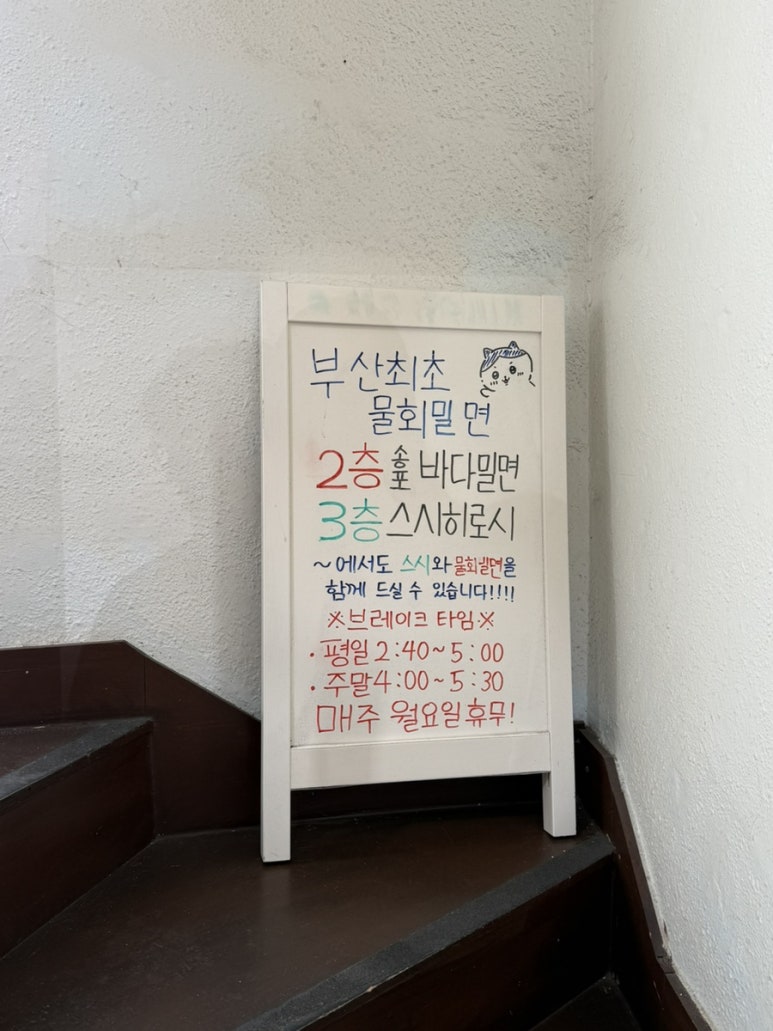 부산최초
물회밀면
2층 송포 바다밀면
3층 스시히로시
~에서도 스시와 물회밀면을
함께 드실 수 있습니다!!!!
※브레이크 타임※
· 평일 2:40~5:00
· 주말 4:00~5:30
매주 월요일 휴무!